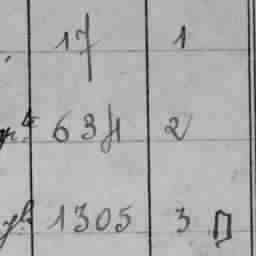 17 1
634 2
1305 3